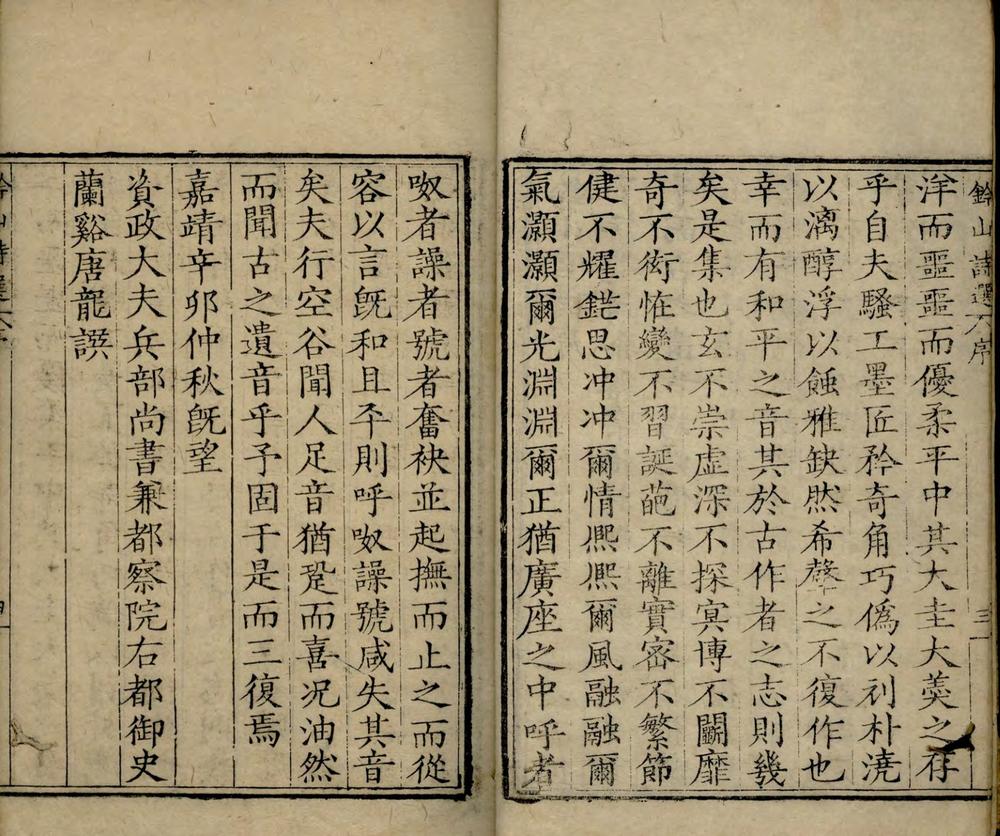 鈐山詩選 序 三
洋而噩噩而優柔平中其大圭大羮之存
乎自夫騷工墨匠矜奇角巧僞以刓朴澆
以漓醇浮以蝕雅缺然希聲之不復作也
幸而有和平之音其於古作者之志則幾
矣是集也玄不崇虚深不探冥博不鬭靡
奇不衒恠變不習誕葩不離實宻不繁節
健不耀鋩思冲冲爾情熈熈爾風融融爾
氣灝灝爾光淵淵爾正猶廣座之中呼者
呶者譟者號者奮袂並起撫而止之而從
容以言旣和且平則呼呶譟號咸失其音
矣夫行空谷聞人足音猶跫而喜况油然
而聞古之遺音乎予固于是而三復焉
嘉靖辛夘仲秋旣望
資政大夫兵部尚書兼都察院右都御史
蘭谿唐龍譔